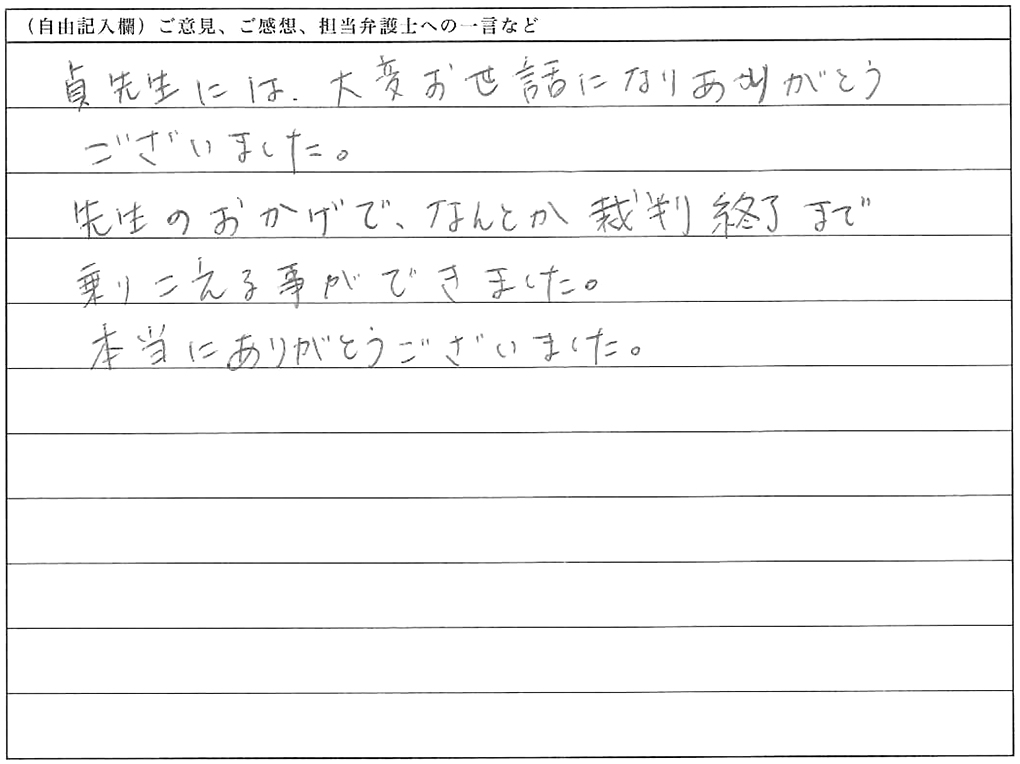 （自由記入欄）ご意見、ご感想、担当弁護士への一言など
貞先生には、大変お世話になりありがとう
ございました。
先生のおかげで、なんとか裁判終了まで
乗りこえる事ができました。
本当にありがとうございました。